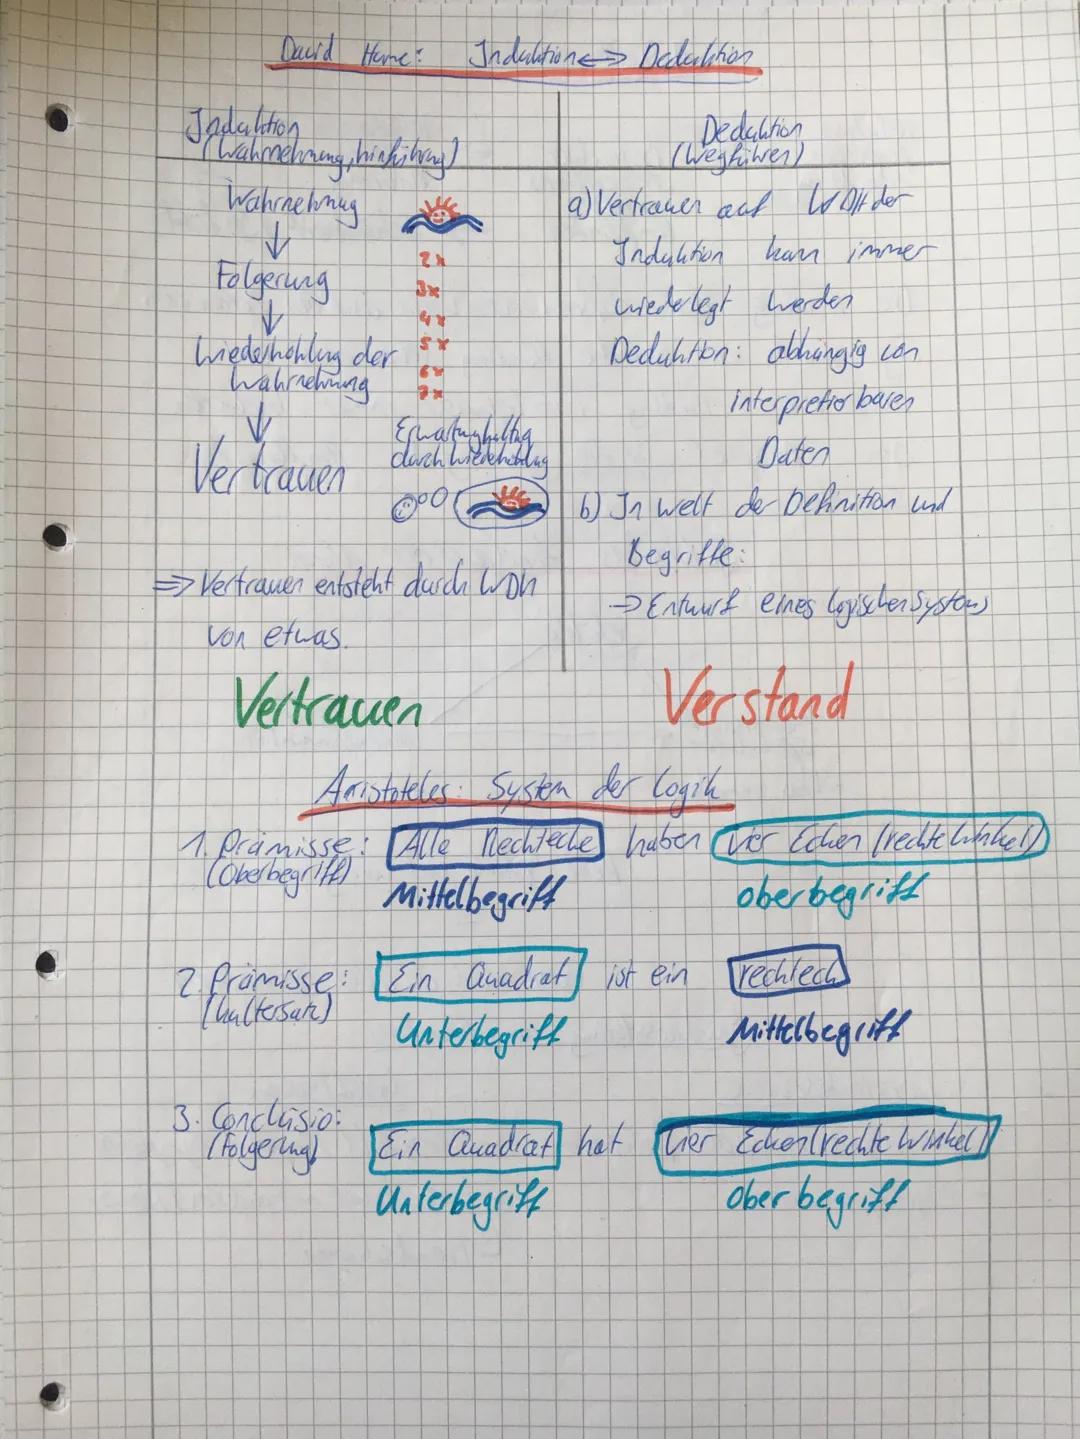 David Hume: Induktion <-> Deduktion
Induktion
(Wahrnehmung, hinführung)
Wahrnehmng
↓
Folgerung
↓
Wiederhohlung der
Wahrnehmung
↓
Vertrauen
2x
3x
4x
5x
6x
7x
Erwartunghaltung
durch Wiederholung
=> Vertrauen entsteht durch WDH
von etwas.
Vertrauen
Deduktion
(Wegführen)
a) Vertrauen auf WDH der
Induktion kann immer
wiederlegt werden
Deduktion: abhängig von
interpretierbaren
Daten
b) In Welt der Definition und
Begriffe:
-> Entwurf eines logischen Systems
Verstand
Aristoteles: System der Logik
1. Prämisse: Alle Rechtecke haben vier Ecken (rechte Winkel)
(Oberbegriff)
Mittelbegriff oberbegriff
2. Prämisse: Ein Quadrat ist ein rechteck
Unterbegriff Mittelbegriff
3. Conclusio:
(Folgerung) Ein Quadrat hat vier Ecken (rechte Winkel)
Unterbegriff Oberbegriff